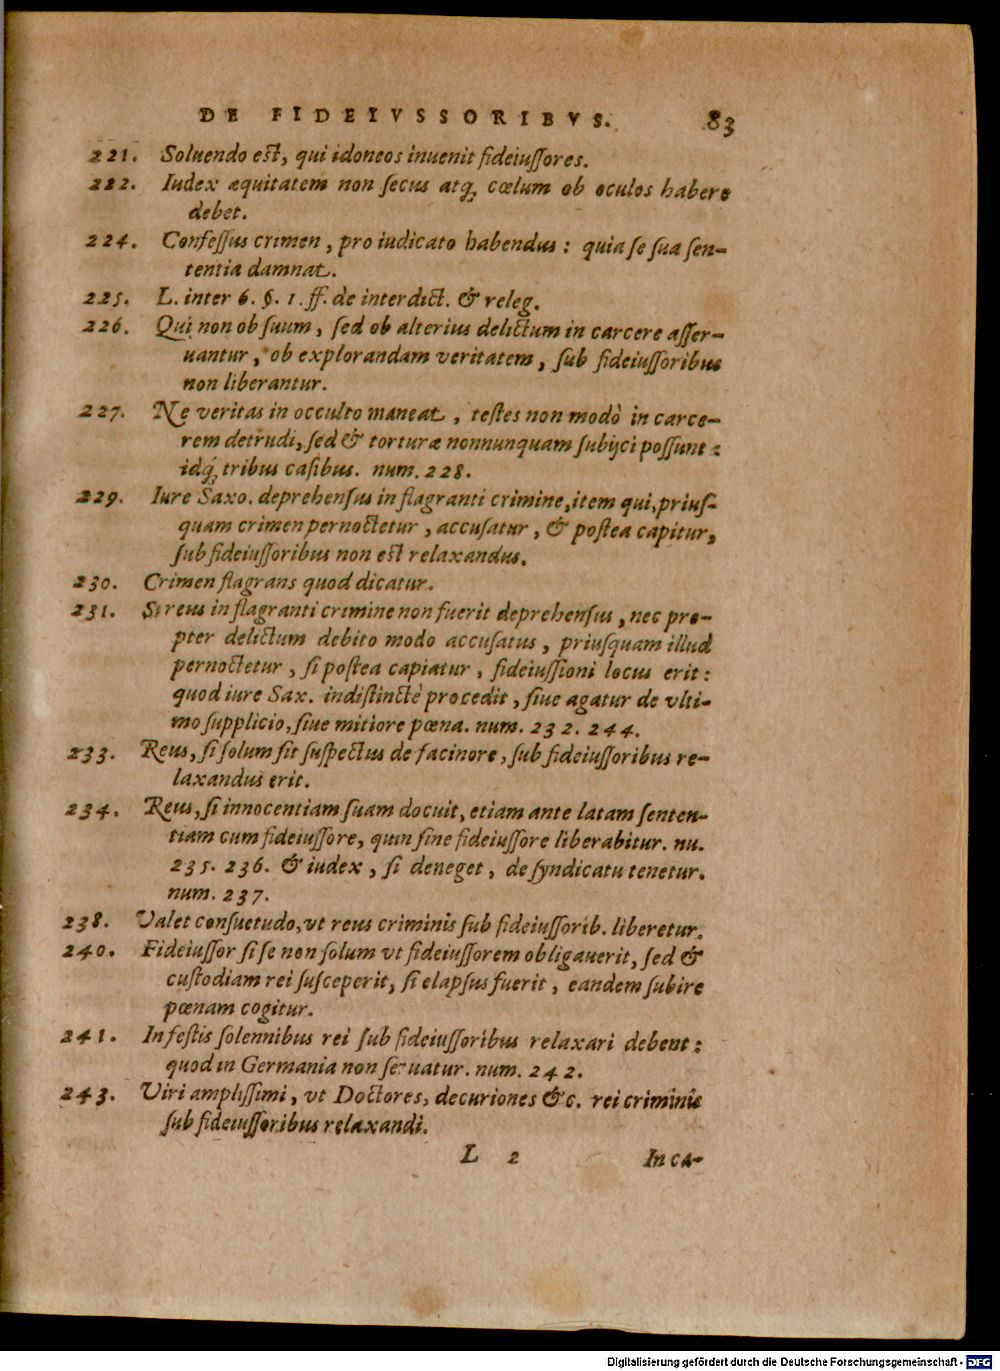 DE FIDEIVSSORIBVS. 83
221. Soluendo est, qui idoneos inuenit fideiussores.
222. Iudex æquitatem non secus atq; cœlum ob oculos habere
debet.
224. Confessus crimen, pro iudicato habendus: quia se sua sen-
tentia damnat.
225. L. inter 6. §. 1. ff. de interdict. & releg.
226. Qui non ob suum, sed ob alterius delictum in carcere asser-
uantur, ob explorandam veritatem, sub fideiussoribus
non liberantur.
227. Ne veritas in occulto maneat, testes non modò in carce-
rem detrudi, sed & torturæ nonnunquam subijci possunt:
idq; tribus casibus. num. 228.
229. Iure Saxo. deprehensus in flagranti crimine, item qui, prius-
quam crimen pernoctetur, accusatur, & postea capitur,
sub fideiussoribus non est relaxandus.
230. Crimen flagrans quod dicatur.
231. Si reus in flagranti crimine non fuerit deprehensus, nec pro-
pter delictum debito modo accusatus, priusquam illud
pernoctetur, si postea capiatur, fideiussioni locus erit:
quod iure Sax. indistinctè procedit, siue agatur de vlti-
mo supplicio, siue mitiore pœna. num. 232. 244.
233. Reus, si solum sit suspectus de facinore, sub fideiussoribus re-
laxandus erit.
234. Reus, si innocentiam suam docuit, etiam ante latam senten-
tiam cum fideiussore, quin sine fideiussore liberabitur. nu.
235. 236. & iudex, si deneget, de syndicatu tenetur.
num. 237.
238. Valet consuetudo, vt reus criminis sub fideiussorib. liberetur.
240. Fideiussor si se non solum vt fideiussorem obligauerit, sed &
custodiam rei susceperit, si elapsus fuerit, eandem subire
pœnam cogitur.
241. In festis solennibus rei sub fideiussoribus relaxari debent:
quod in Germania non seruatur. num. 242.
243. Viri amplissimi, vt Doctores, decuriones &c. rei criminis
sub fideiussoribus relaxandi.
L 2 In ca-
Digitalisierung gefördert durch die Deutsche Forschungsgemeinschaft - DFG